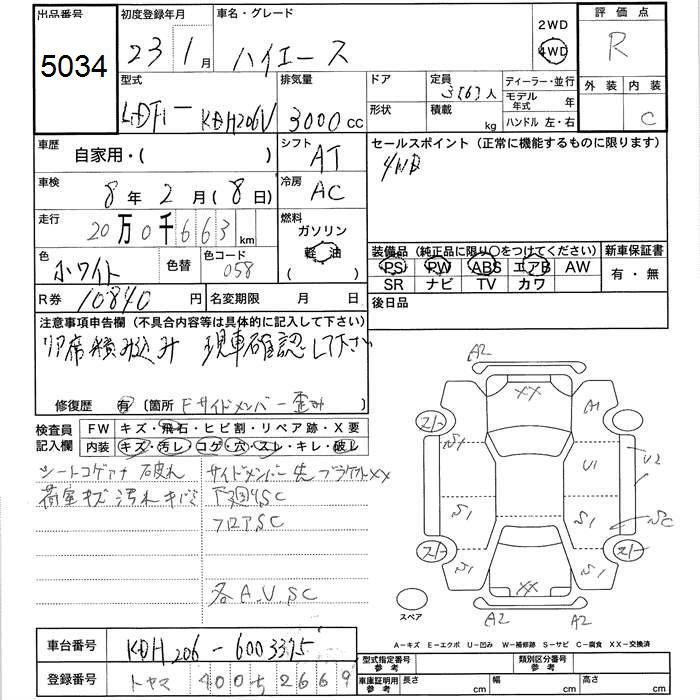 出品番号 初度登録年月 車名・グレード 2WD 評価点
5034 23 1月 ハイエース 4WD R
型式 排気量 ドア 定員 ディーラー・並行 外装 内装
LDF- KDH206V 3000cc 形状 3(6)人 積載 kg モデル年式 年 ハンドル 左・右 C
車歴 自家用・( ) シフト AT セールスポイント(正常に機能するものに限ります)
4WD
車検 8年2月(8日) 冷房 AC
走行 20万0千663km 燃料 ガソリン
軽油
( )
色 ホワイト 色替 色コード 058 装備品(純正品に限り〇をつけてください) 新車保証書
PS PW ABS エアB AW 有・無
SR ナビ TV カワ
R券 10840円 名変期限 月 日 後日品
注意事項申告欄(不具合内容等は具体的に記入して下さい)
リア席積み込み 現車確認して下さい
修復歴 有 (箇所 Fサイドメンバー歪み )
検査員 FW キズ・飛石・ヒビ割・リペア跡・X要
記入欄 内装 キズ・汚レ・コゲ・穴・スレ・キレ・破レ
シートコゲアナ 破れ サイドメンバー先ブラケットXX
荷室キズ 汚れ キバミ 下廻りSC
フロアSC
各A.U.SC
A2
XX
A1
スノー
S1
U1
U2
S1
S1
SC
スノー
スノー
S1
XX
S1
スペア
A2
A2
A-キズ E-エクボ U-凹み W-補修跡 S-サビ C-腐食 XX-交換済
車台番号 KDH206-6003375
型式指定番号 参考 類別区分番号 参考
登録番号 トヤマ 400そ2669
車庫証明用参考 長さ cm 幅 cm 高さ cm